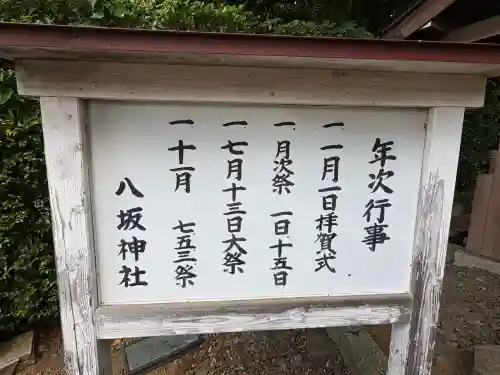 年次行事
一 一月一日拝賀式
一 月次祭 一日十五日
一 七月十三日大祭
一 十一月 七五三祭
八坂神社